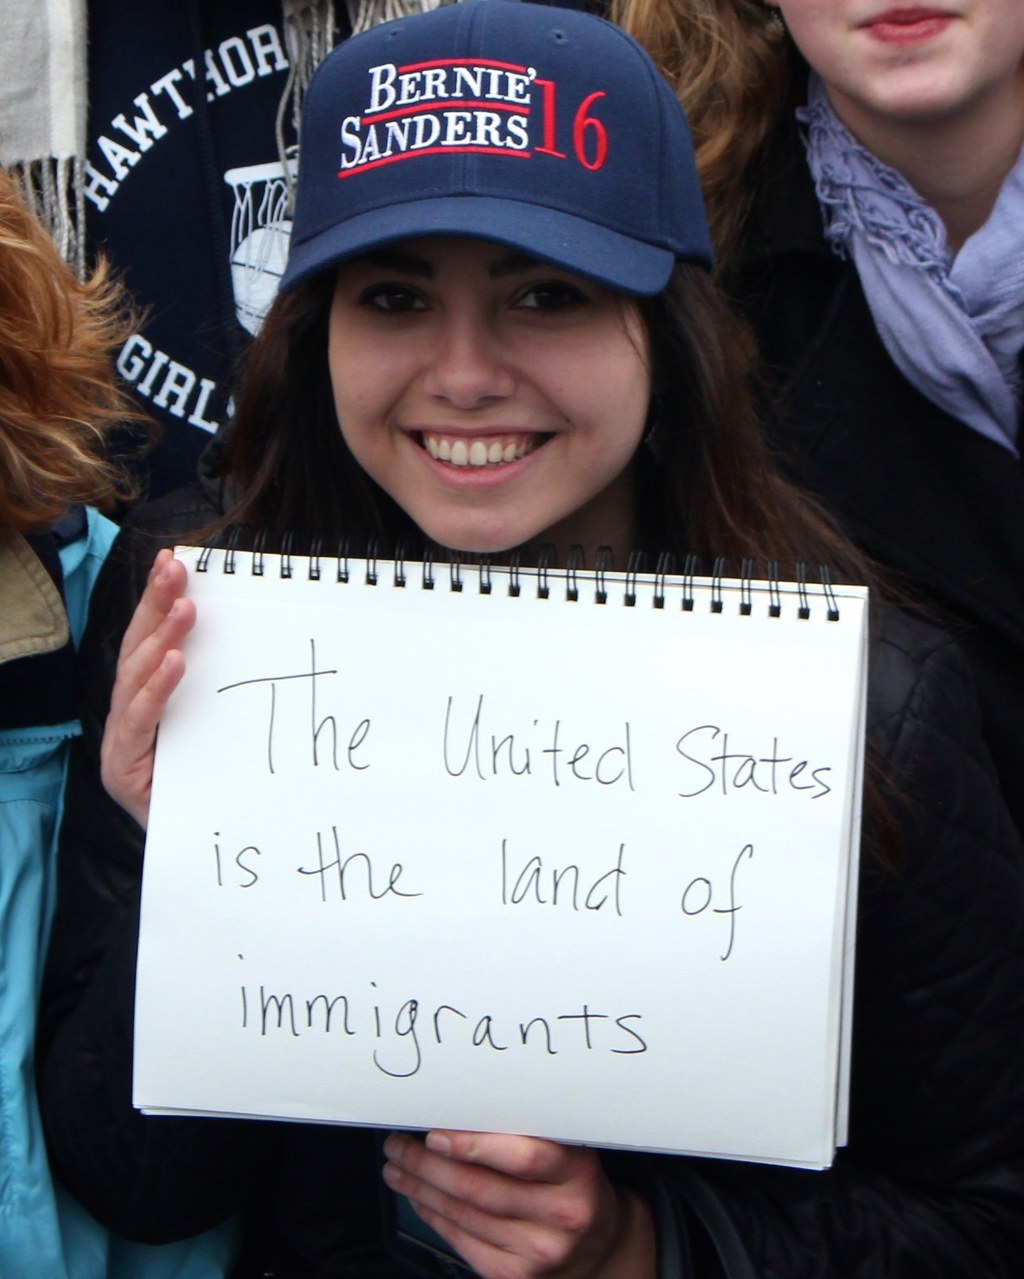 HAWTHOR
GIRL
BERNIE
SANDERS
'16
The United States
is the land of
immigrants